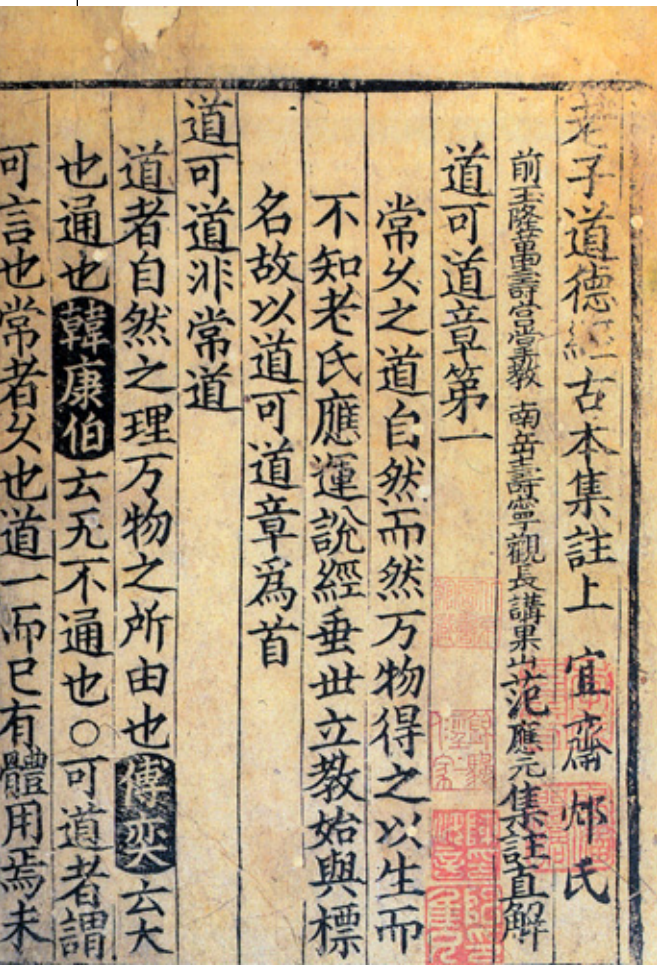 老子道德經古本集註上 宜齋邺氏
前玉隆萬壽宮掌教 南岳壽寧觀長講果山范應元集註直解
道可道章第一
常久之道自然而然万物得之以生而
不知老氏應運說經垂世立教始與標
名故以道可道章爲首
道可道非常道
道者自然之理万物之所由也傅奕云大
也通也韓康伯云无不通也○可道者謂
可言也常者久也道一而已有體用焉未